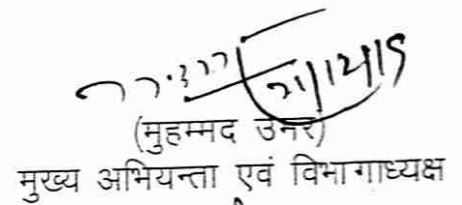 (मुहम्मद उमर)
मुख्य अभियन्ता एवं विभागाध्यक्ष